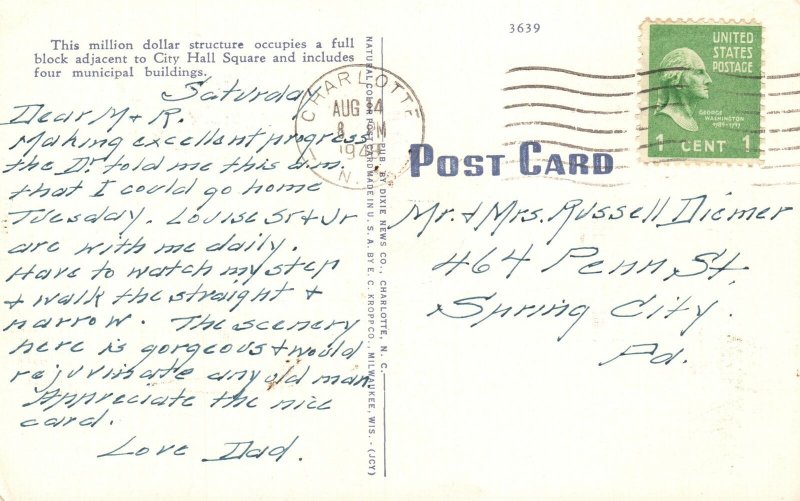 This million dollar structure occupies a full
block adjacent to City Hall Square and includes
four municipal buildings.
Saturday
Dear M + R.
Making excellent progress
the Dr. told me this a.m.
that I could go home
Tuesday. Louise Sr + Jr
are with me daily.
Have to watch my step
+ walk the straight +
narrow. The scenery
here is gorgeous + would
rejuvinate any old man.
Appreciate the nice
card.
Love Dad.
NATURAL COLOR POST CARD MADE IN U. S. A. BY E. C. KROPP CO., MILWAUKEE, WIS. (JCY)
PUB. BY DIXIE NEWS CO., CHARLOTTE, N. C.
CHARLOTTE
AUG 14
8 M
194
N.
3639
UNITED
STATES
POSTAGE
GEORGE
WASHINGTON
1789-1797
1 CENT 1
POST CARD
Mr. + Mrs. Russell Diemer
464 Penn St.
Spring City.
Pd.